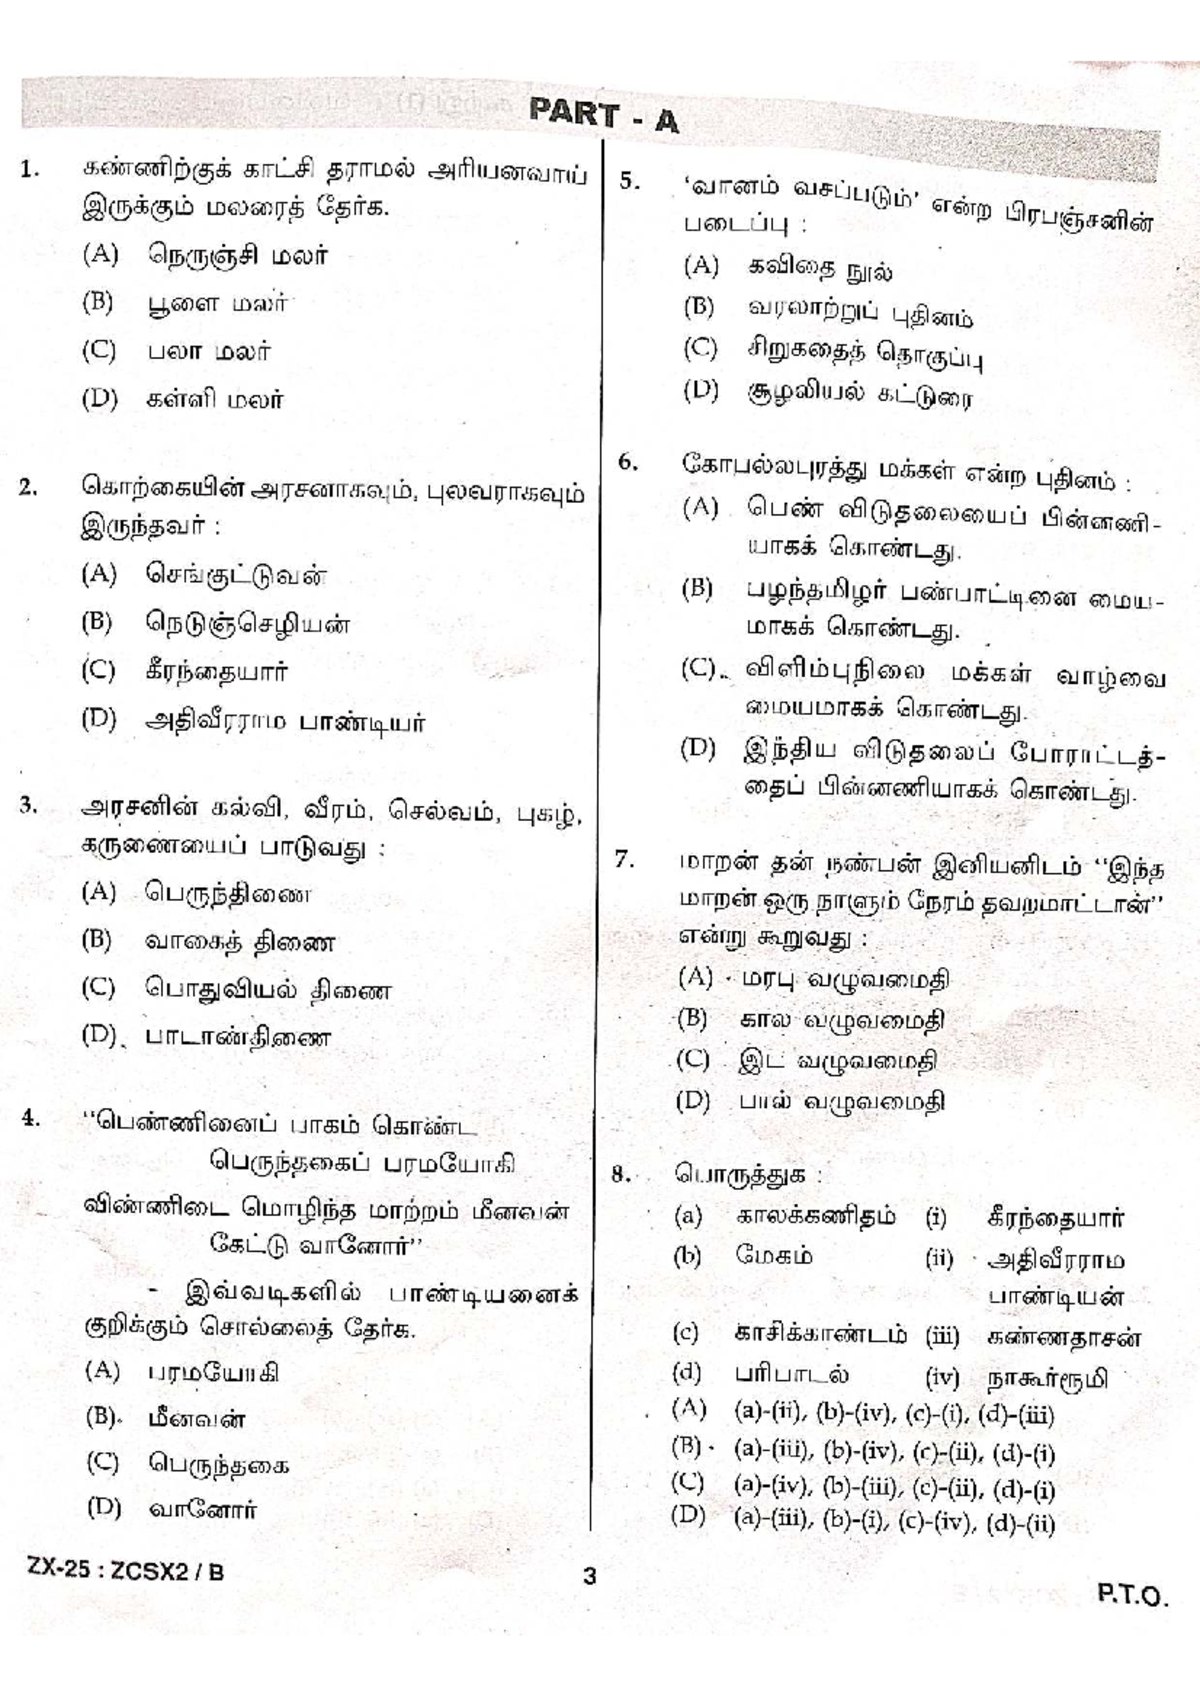 PART - A
1. கண்ணிற்குக் காட்சி தராமல் அரியனவாய்
இருக்கும் மலரைத் தேர்க.
(A) நெருஞ்சி மலர்
(B) பூளை மலர்
(C) பலா மலர்
(D) கள்ளி மலர்
2. கொற்கையின் அரசனாகவும், புலவராகவும்
இருந்தவர் :
(A) செங்குட்டுவன்
(B) நெடுஞ்செழியன்
(C) கீரந்தையார்
(D) அதிவீரராம பாண்டியர்
3. அரசனின் கல்வி, வீரம், செல்வம், புகழ்,
கருணையைப் பாடுவது :
(A) பெருந்திணை
(B) வாகைத் திணை
(C) பொதுவியல் திணை
(D) பாடாண்திணை
4. "பெண்ணினைப் பாகம் கொண்ட
பெருந்தகைப் பரமயோகி
விண்ணிடை மொழிந்த மாற்றம் மீனவன்
கேட்டு வானோர்"
- இவ்வடிகளில் பாண்டியனைக்
குறிக்கும் சொல்லைத் தேர்க.
(A) பரமயோகி
(B) மீனவன்
(C) பெருந்தகை
(D) வானோர்
5. 'வானம் வசப்படும்' என்ற பிரபஞ்சனின்
படைப்பு :
(A) கவிதை நூல்
(B) வரலாற்றுப் புதினம்
(C) சிறுகதைத் தொகுப்பு
(D) சூழலியல் கட்டுரை
6. கோபல்லபுரத்து மக்கள் என்ற புதினம் :
(A) பெண் விடுதலையைப் பின்னணி-
யாகக் கொண்டது.
(B) பழந்தமிழர் பண்பாட்டினை மைய-
மாகக் கொண்டது.
(C) விளிம்புநிலை மக்கள் வாழ்வை
மையமாகக் கொண்டது.
(D) இந்திய விடுதலைப் போராட்டத்-
தைப் பின்னணியாகக் கொண்டது.
7. மாறன் தன் நண்பன் இனியனிடம் "இந்த
மாறன் ஒரு நாளும் நேரம் தவறமாட்டான்"
என்று கூறுவது :
(A) மரபு வழுவமைதி
(B) கால வழுவமைதி
(C) இட வழுவமைதி
(D) பால் வழுவமைதி
8. பொருத்துக :
(a) காலக்கணிதம் (i) கீரந்தையார்
(b) மேகம் (ii) அதிவீரராம
பாண்டியன்
(c) காசிக்காண்டம் (iii) கண்ணதாசன்
(d) பரிபாடல் (iv) நாகூர்ரூமி
(A) (a)-(ii), (b)-(iv), (c)-(i), (d)-(iii)
(B) (a)-(iii), (b)-(iv), (c)-(ii), (d)-(i)
(C) (a)-(iv), (b)-(iii), (c)-(ii), (d)-(i)
(D) (a)-(iii), (b)-(i), (c)-(iv), (d)-(ii)
ZX-25 : ZCSX2 / B
3
P.T.O.